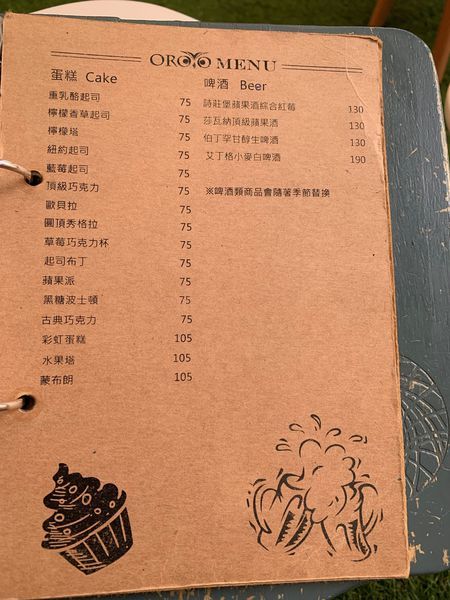 OROYO MENU
蛋糕 Cake
重乳酪起司 75
檸檬香草起司 75
檸檬塔 75
紐約起司 75
藍莓起司 75
頂級巧克力 75
歐貝拉 75
圓頂秀格拉 75
草莓巧克力杯 75
起司布丁 75
蘋果派 75
黑糖波士頓 75
古典巧克力 75
彩虹蛋糕 105
水果塔 105
蒙布朗 105
啤酒 Beer
詩莊堡蘋果酒綜合紅莓 130
莎瓦納頂級蘋果酒 130
伯丁罕甘醇生啤酒 130
艾丁格小麥白啤酒 190
※啤酒類商品會隨著季節替換